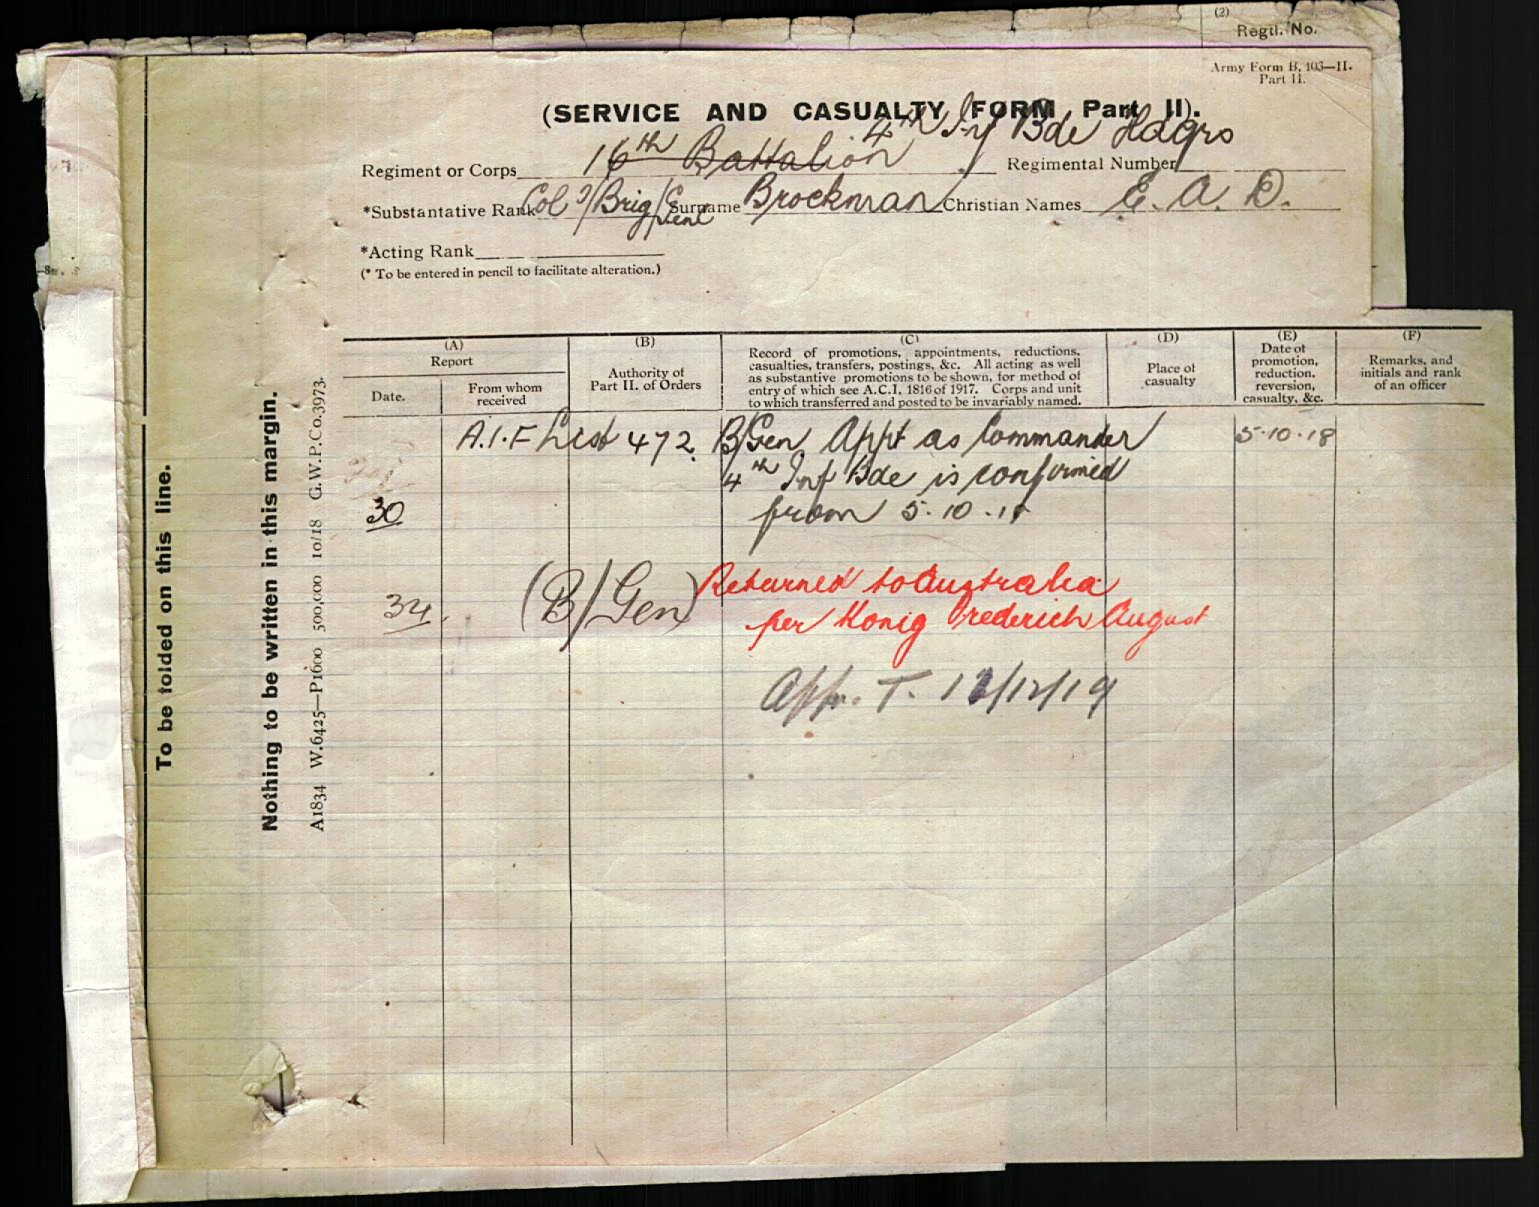 (2)
Regtl. No.
Army Form B. 103—II.
Part II.
(SERVICE AND CASUALTY FORM Part II).
4th Iny Bde Hdqrs
Regiment or Corps 16th Battalion Regimental Number
*Substantative Rank Col T/Brig/Genl Surname Brockman Christian Names E. A. D.
*Acting Rank
(* To be entered in pencil to facilitate alteration.)
(A) (B) (C) (D) (E) (F)
Report
Date.
From whom
received
Authority of
Part II. of Orders
Record of promotions, appointments, reductions,
casualties, transfers, postings, &c. All acting as well
as substantive promotions to be shown, for method of
entry of which see A.C.I. 1816 of 1917. Corps and unit
to which transferred and posted to be invariably named.
Place of
casualty
Date of
promotion,
reduction,
reversion,
casualty, &c.
Remarks, and
initials and rank
of an officer
A.I.F List 472. B/Gen Appt as Commander 5.10.18
4th Inf Bde is confirmed
30 from 5.10.18
(B/Gen) Returned to Australia
34. per Konig Frederich August
Appr. T. 12/12/19
To be folded on this line.
Nothing to be written in this margin.
A1834 W.6425—P1600 500,000 10/18 G.W.P.Co.3973.